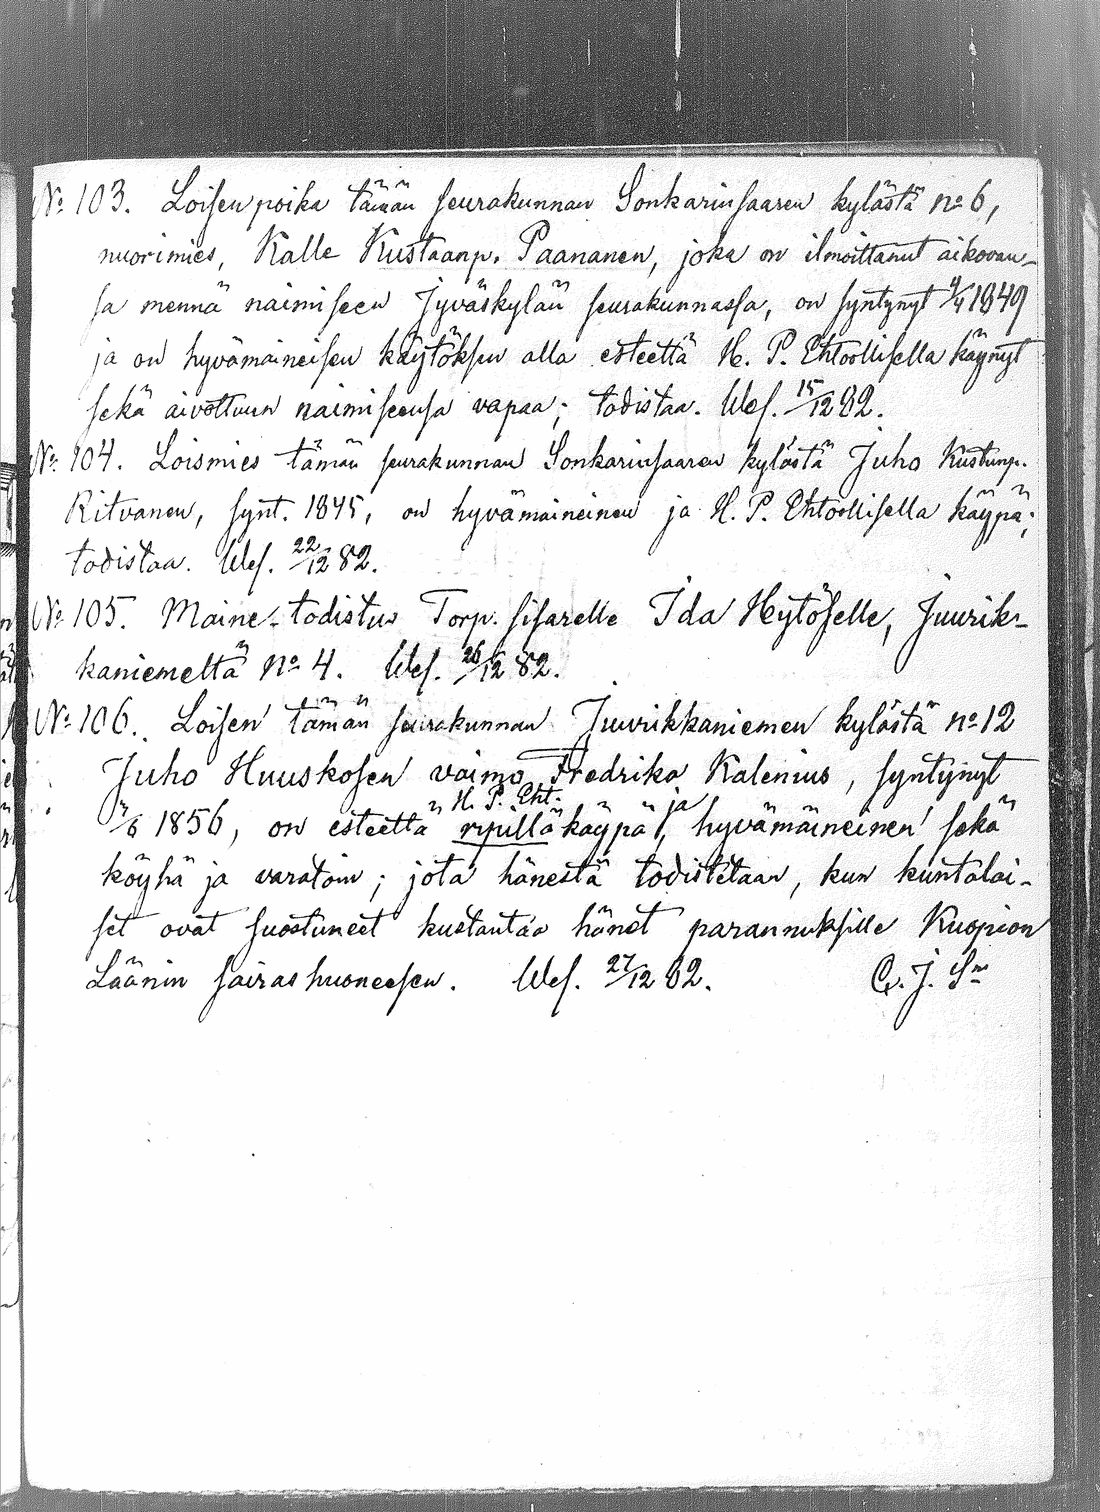 No 103. Loisen poika tämän seurakunnan Sonkarinsaaren kylästä no 6,
nuorimies, Kalle Kustaanp. Paananen, joka on ilmoittanut aikovan-
sa mennä naimiseen Jyväskylän seurakunnassa, on syntynyt 9/4 1849
ja on hyvämaineisen käytöksen alla esteettä H. P. Ehtoollisella käynyt
sekä aivottuun naimiseensa vapaa; todistaa. Wes. 15/12 82.
No 104. Loismies tämän seurakunnan Sonkarinsaaren kylästä Juho Kustunp.
Ritvanen, synt. 1845, on hyvämaineinen ja H. P. Ehtoollisella käypä;
todistaa. Wes. 22/12 82.
No 105. Maine-todistus Torp. sisarelle Ida Hytöselle, Juurik-
kaniemeltä No 4. Wes. 26/12 82.
No 106. Loisen tämän seurakunnan Juurikkaniemen kylästä no 12
Juho Huuskosen vaimo Fredrika Kalenius, syntynyt
H. P. Eht. ja
7/6 1856, on esteettä ripillä käypä, hyvämäineinen sekä
köyhä ja varatoin; jota hänestä todistetaan, kun kuntalai-
set ovat suostuneet kustantaa hänet parannuksille Kuopion
Läänin sairashuoneesen. Wes. 27/12 82. J. Sm